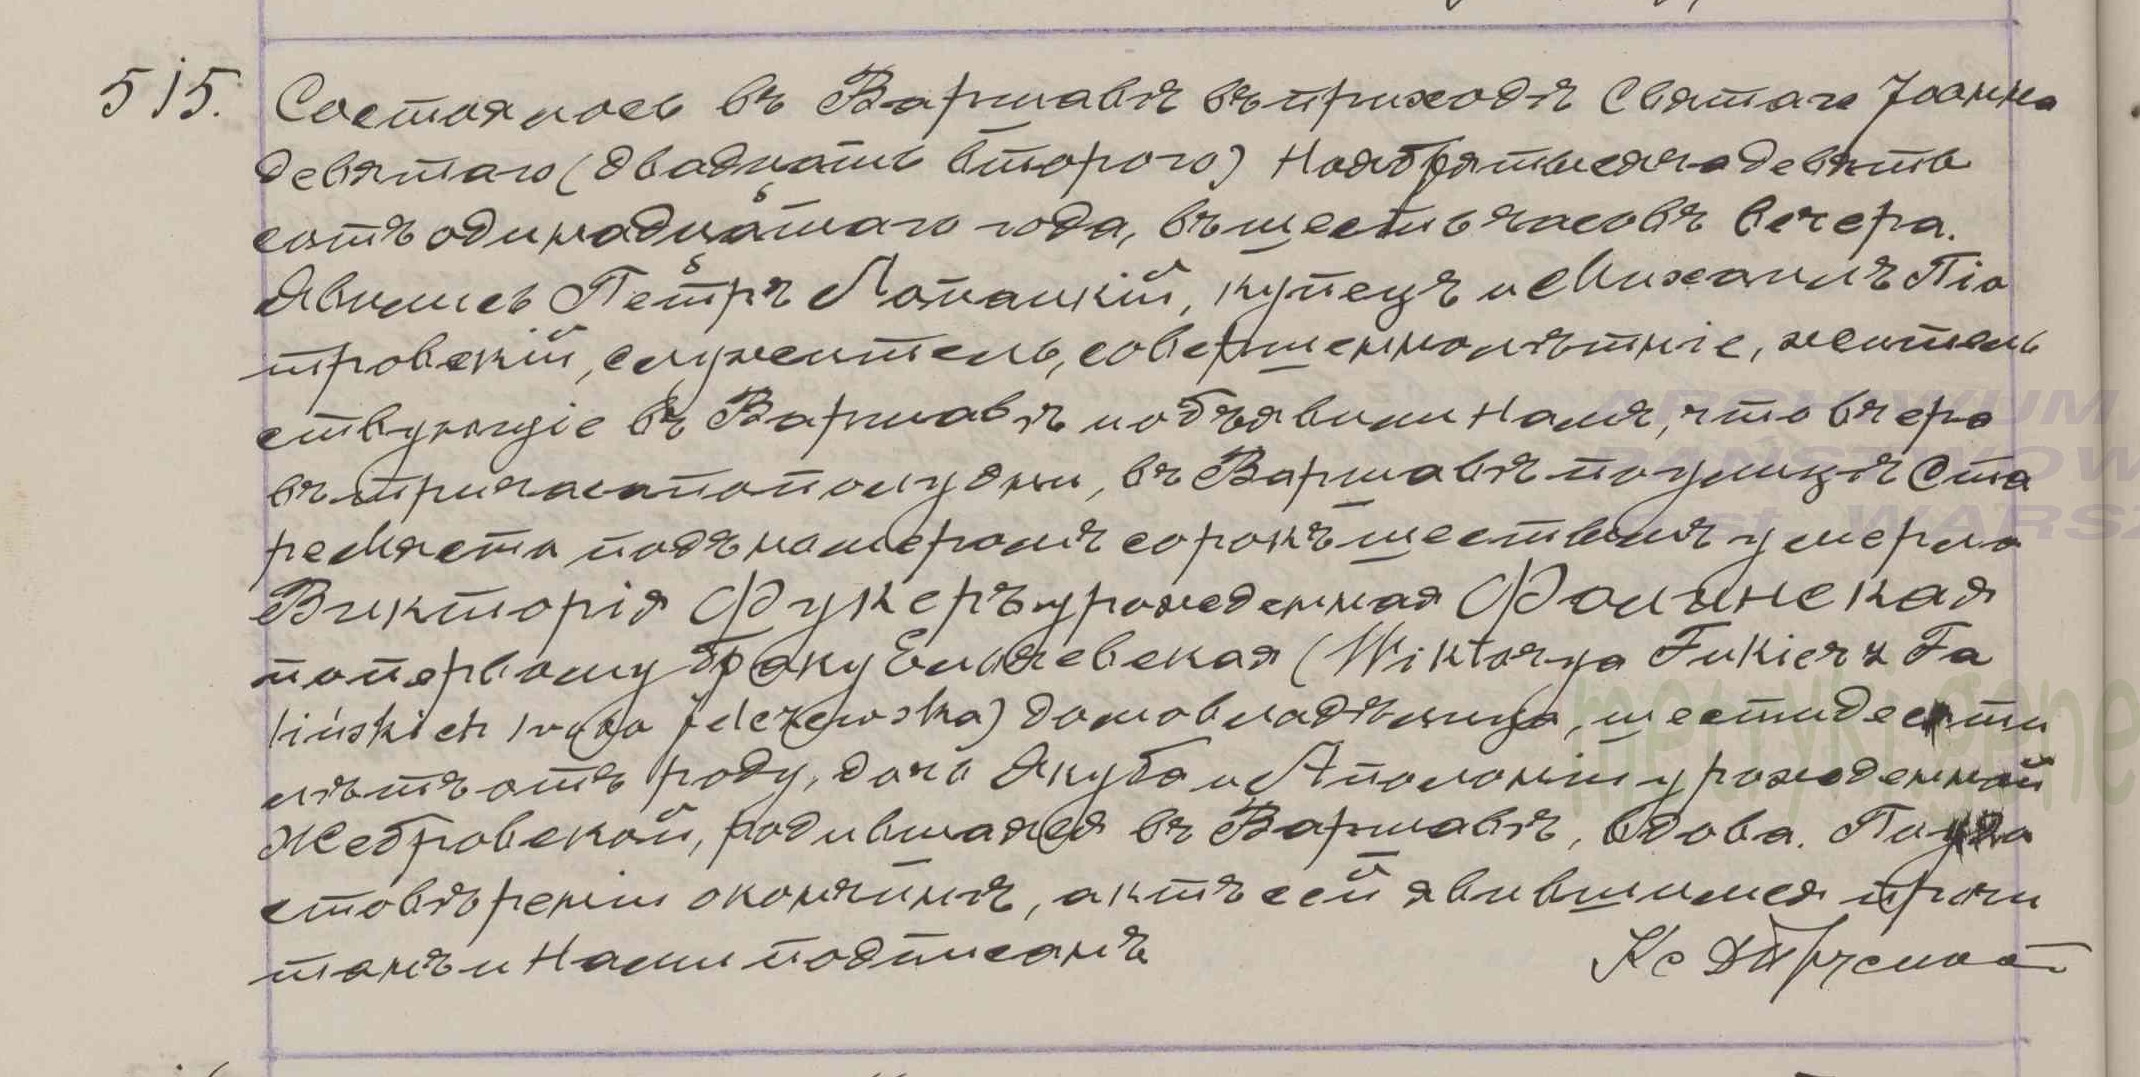 515.
Состоялось въ Варшавѣ въ приходѣ Святаго Іоанна
девятаго (двадцать втораго) Ноября тысяча девять
сотъ одинадцатаго года, въ шесть часовъ вечера.
Явились Петръ Лопацкій, купецъ и Михаилъ Піо
тровскій, служитель, совершеннолѣтніе, житель
ствующіе въ Варшавѣ и объявили Намъ, что вчера
въ три часа по полудни, въ Варшавѣ по улицѣ Ста
ре Място подъ номеромъ сорокъ шестымъ умерла
Викторія Фукеръ урожденная Фалинская
по первому браку Ельжевская (Wiktorya Fukier z Fa
lińskich 1 voto Jelczewska) домовладѣлица, шестидесяти
лѣтъ отъ роду, дочь Якуба и Аполоніи урожденной
Жебровской, родившаяся въ Варшавѣ, вдова. По удо
стовѣреніи кончины, актъ сей явившимся прочи
танъ и Нами подписанъ
Кс
ARCHIWUM
PAŃSTWOW
WARSZ
metryki.gene